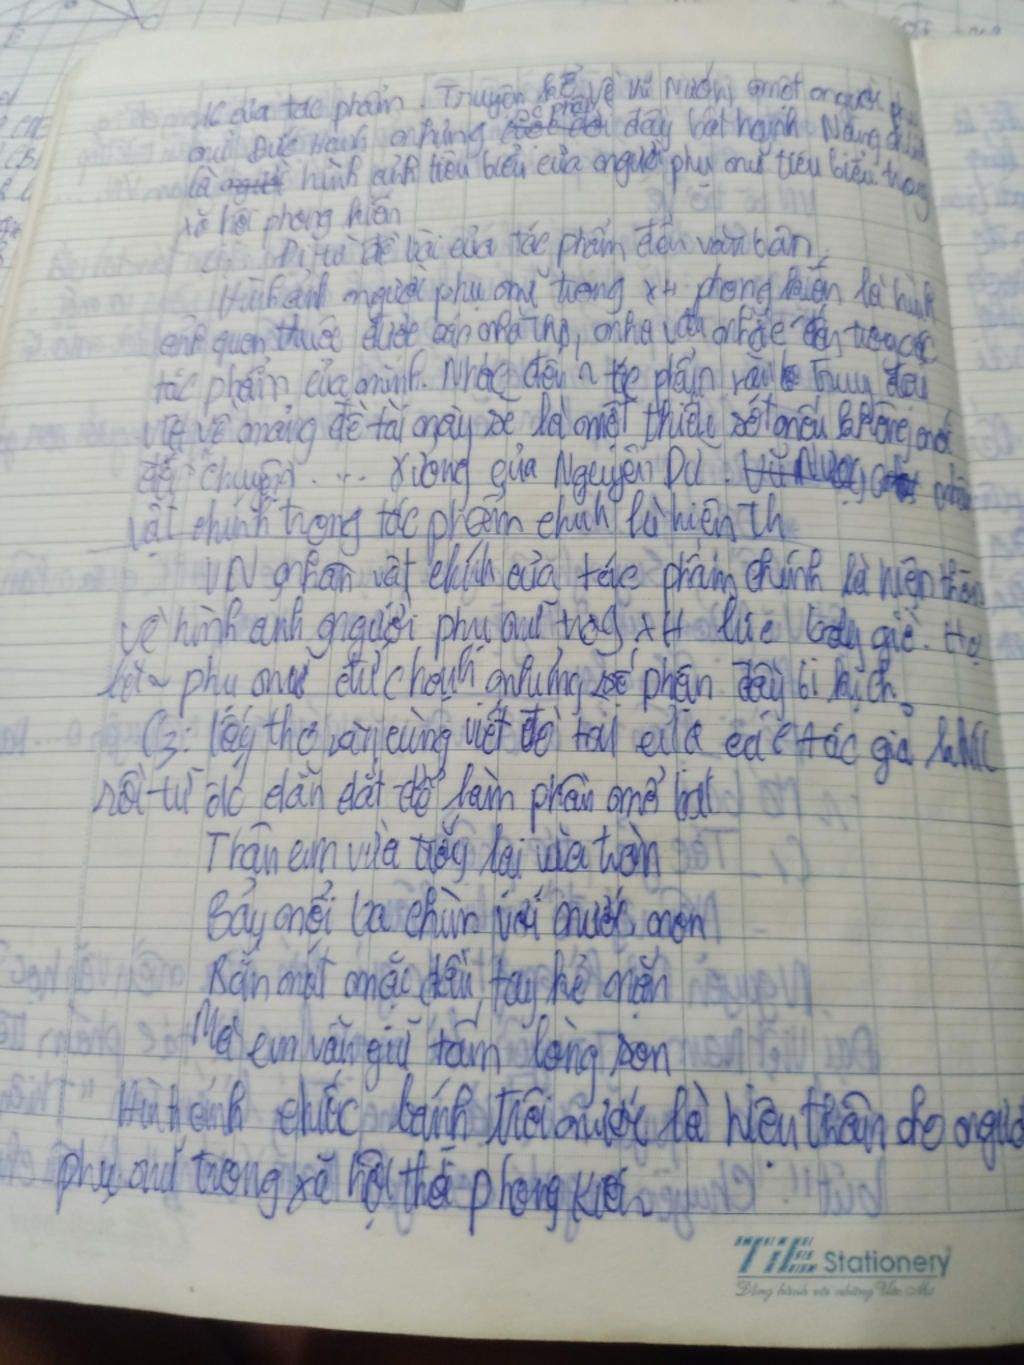 của tác phẩm. Truyện kể về Vũ Nương một người phụ
nữ Đức Hạnh nhưng phận đầy bất hạnh Nàng
là hình ảnh tiêu biểu của người phụ nữ tiêu biểu trong
xã hội phong kiến
Đi từ đề tài của tác phẩm đến văn bản,
Hình ảnh người phụ nữ trong XH phong kiến là hình
ảnh quen thuộc được các nhà thơ, nhà văn nhắc đến trong các
tác phẩm của mình. Nhắc đến ~ tác phẩm văn
viết về mảng đề tài này sẽ là một thiếu sót nếu không nhắc
đến Chuyện .... Xương của Nguyễn Dữ. Vũ Nương nhân
vật chính trong tác phẩm chính là hiện th
VN nhân vật chính của tác phẩm chính là hiện thân
về hình ảnh người phụ nữ trong XH lúc bấy giờ.
~ phụ nữ đức hạnh nhưng số phận đầy bi kịch.
C3: lấy thơ văn cùng viết đề tài của các tác giả khác
rồi từ đó dẫn dắt để làm phần mở bài
Thân em vừa trắng lại vừa tròn
Bảy nổi ba chìm với nước non
Rắn nát mặc dầu tay kẻ nặn
Mà em vẫn giữ tấm lòng son
Hình ảnh chiếc bánh trôi nước là hiện thân cho người
phụ nữ trong xã hội thời phong kiến
TiE Stationery
Đồng hành với những Ước Mơ